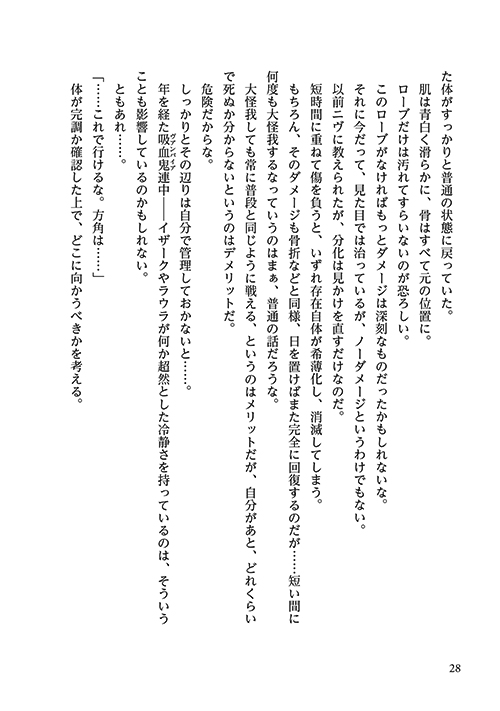 た体がすっかりと普通の状態に戻っていた。
肌は青白く滑らかに、骨はすべて元の位置に。
ローブだけは汚れてすらいないのが恐ろしい。
このローブがなければもっとダメージは深刻なものだったかもしれないな。
それに今だって、見た目では治っているが、ノーダメージというわけでもない。
以前ニヴに教えられたが、分化は見かけを直すだけなのだ。
短時間に重ねて傷を負うと、いずれ存在自体が希薄化し、消滅してしまう。
もちろん、そのダメージも骨折などと同様、日を置けばまた完全に回復するのだが……短い間に
何度も大怪我するなっていうのはまぁ、普通の話だろうな。
大怪我しても常に普段と同じように戦える、というのはメリットだが、自分があと、どれくらい
で死ぬか分からないというのはデメリットだ。
危険だからな。
しっかりとその辺りは自分で管理しておかないと……。
年を経た吸血鬼連中――イザークやラウラが何か超然とした冷静さを持っているのは、そういう
ヴァンパイア
ことも影響しているのかもしれない。
ともあれ……。
「……これで行けるな。方角は……」
体が完調か確認した上で、どこに向かうべきかを考える。
28